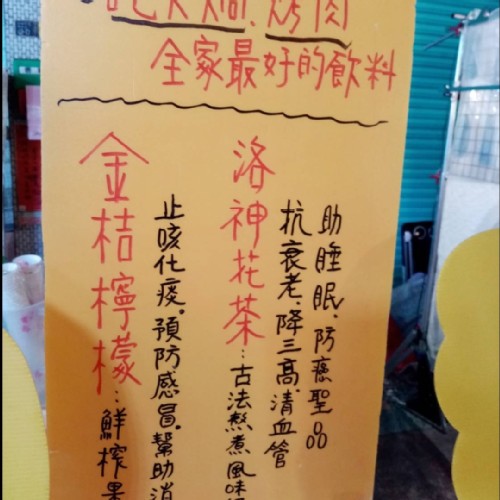 吃火鍋、烤肉
全家最好的飲料
洛神花茶：古法熬煮風味
助睡眠、防癌聖品
抗衰老、降三高、清血管
金桔檸檬：鮮榨果
止咳化痰。預防感冒。幫助消